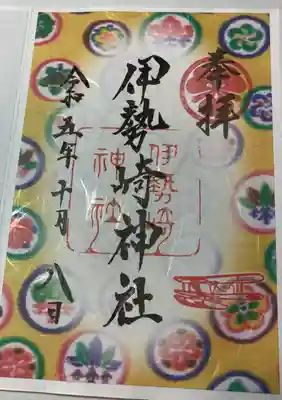 奉拝
伊勢崎神社
伊勢崎
神社
令和五年十月八日